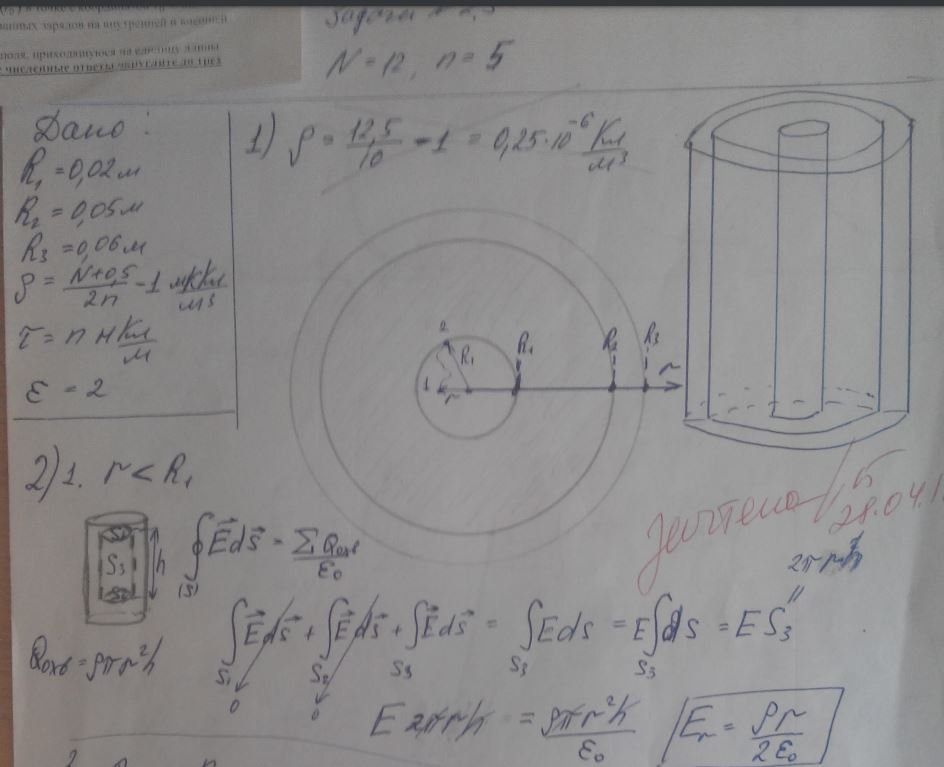 в точке с координатой
зарядов на внутренней и внешней
поля, приходящуюся на единицу длины
численные ответы округлить до трёх
Задача
N = 12, n = 5
Дано:
R₁ = 0,02 м
R₂ = 0,05 м
R₃ = 0,06 м
ρ = (N+0,5)/2n - 1 мкКл/м³
τ = n нКл/м
ε = 2
1) ρ = 12,5/10 - 1 = 0,25·10⁻⁶ Кл/м³
2 R₁ R₁ R₂ R₃ r
1 r
2) 1. r < R₁
S₃ h
∮(S) E⃗ds⃗ = Σ Qохв/ε₀
зачтено
28.04.1
2πrh
Qохв = ρπr²h
∫S₁ E⃗ds⃗ + ∫S₂ E⃗ds⃗ + ∫S₃ E⃗ds⃗ = ∫S₃ Eds = E∫S₃ ds = ES₃
0 0
E 2πrh = ρπr²h/ε₀
Eᵣ = ρr/2ε₀